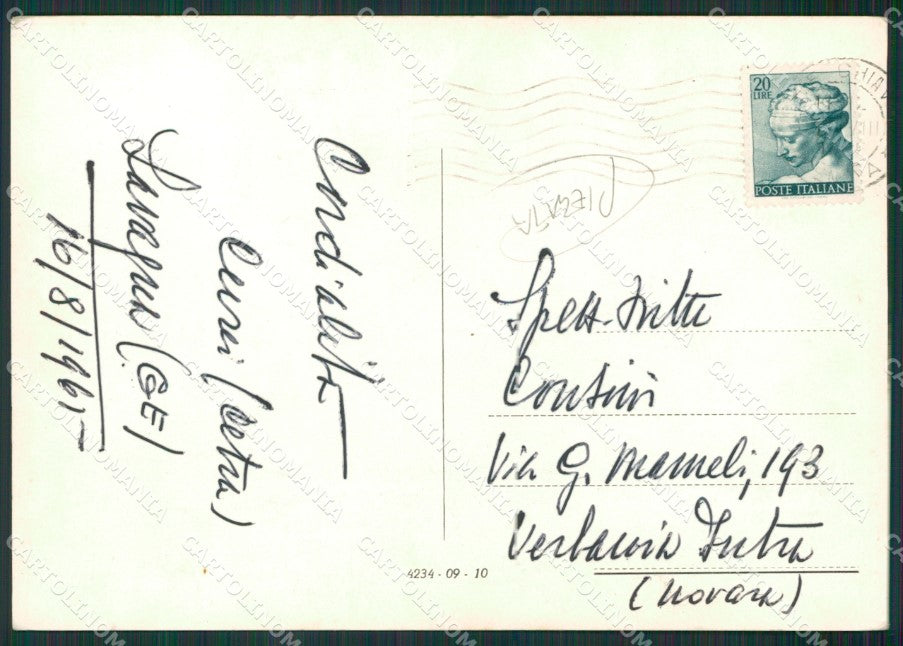 Cordialità
Censi (Cetra)
Lavagna (GE)
16/8/1965
20
LIRE
POSTE ITALIANE
CHIAV
Spett. Ditta
Contini
Via G. Mameli, 193
Verbania Intra
(Novara)
4234 - 09 - 10
CARTOLINOMANIA